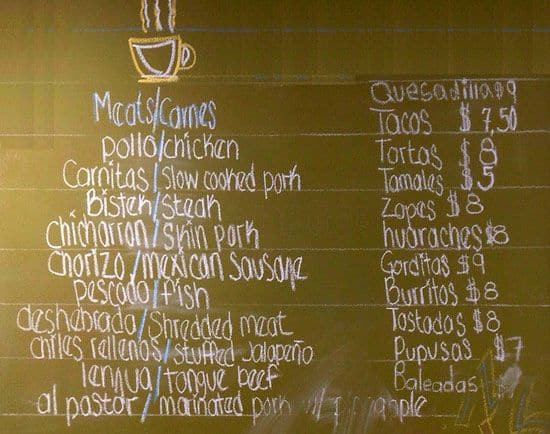 Meats/Carnes
pollo/chicken
Carnitas/Slow cooked pork
Bistek/Steak
Chicharron/skin pork
Chorizo/mexican sausage
pescado/fish
deshebrada/Shredded meat
chiles rellenos/stuffed Jalapeño
lengua/tongue beef
al pastor/marinated pork
Quesadilla $9
Tacos $7,50
Tortas $8
Tamales $5
Zopes $8
huaraches $8
Gorditas $9
Burritos $8
Tostadas $8
Pupusas $7
Baleadas